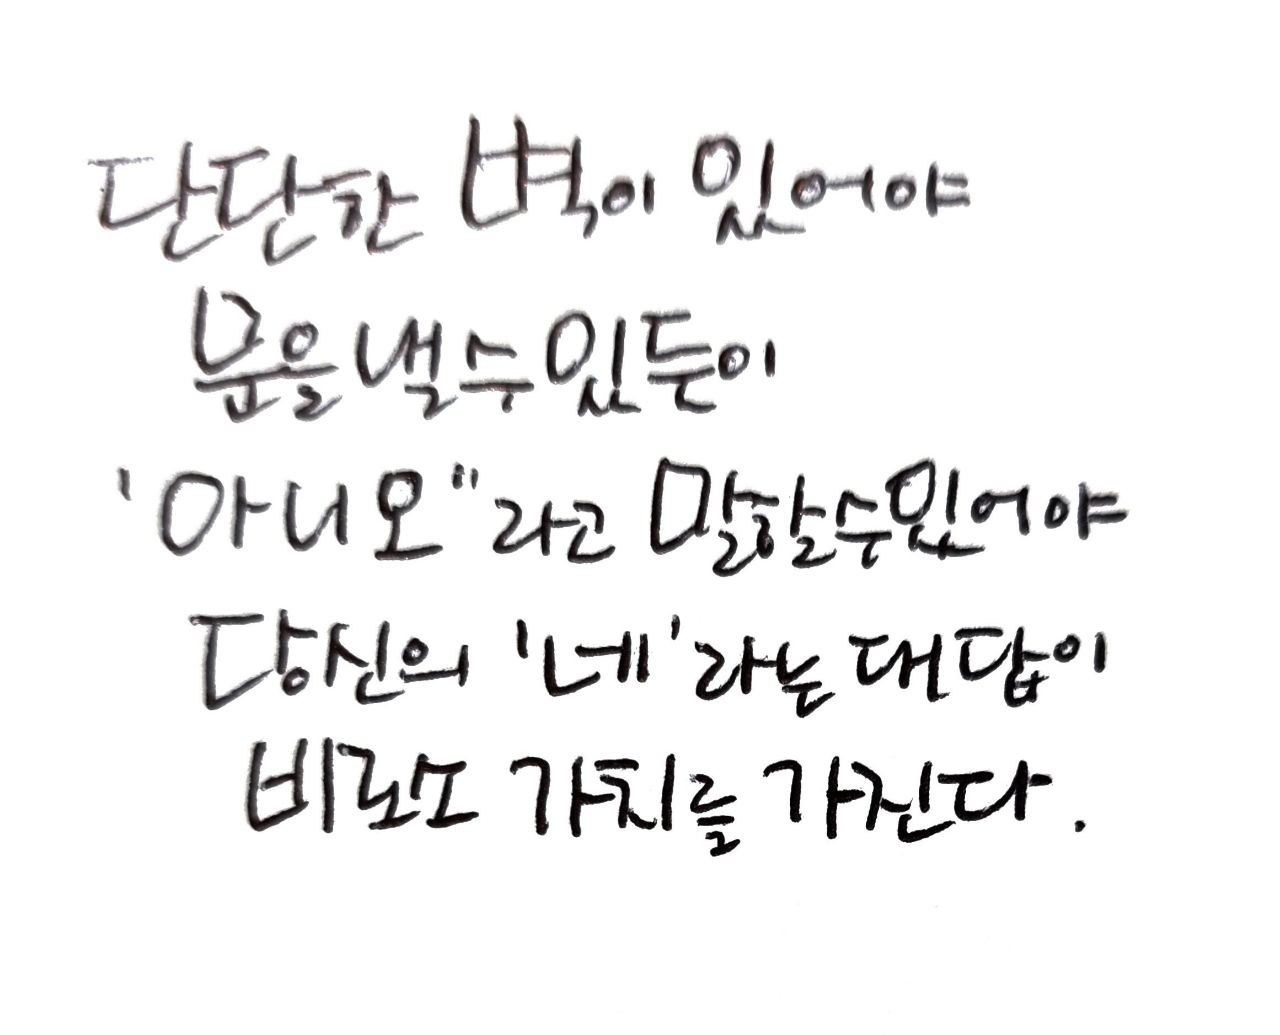 단단한 벽이 있어야
문을 낼 수 있듯이
'아니오"라고 말할 수 있어야
당신의 '네'라는 대답이
비로소 가치를 가진다.